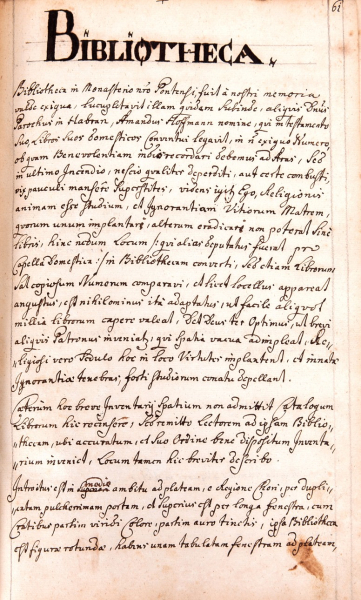 61
BIBLIOTHECA.
Bibliotheca in Monasterio nrô Pontensi, fuit â nostri memoria
valde exigua, Lucupletavit illam quidam Subinde, aliquis Dnus
Parochus in Habran, Amandus Hoffmann nomine, qui in testamento
Suo Libros Suos domesticos Conventui legavit, in nō exiguo Numero,
ob quam Benevolentiam recordari debemus ad Aras, Sed
in ultimo Incendio, nescio qualiter deperditi, aut certe combusti,
vix pauculi mansêre Superstites, videns igitur Ego, Religionis
animam esse Studium, et Ignorantiam Vitiorum Matrem,
quorum unum implantari, alterum eradicari non poterat Sine
libris, hinc novum Locum /: qui alias deputatus fuerat pro
Capella Domestica :/ in Bibliothecam converti, Sed etiam Librorum
Sat copiosum Numerum comparavi, et licet Locellus appareat
angustus, est nihilominus ita adaptatus, ut facile aliquot
millia librorum capere valeat, Det Deus ter Optimus, ut brevi
aliquis Patronus inveniatur, qui Spatia vacua adimpleat, Re-
ligiosi vero Sedulo hoc in loco Virtutes implantent, et innatæ
Ignorantiæ tenebras, forti Studiorum conatu depellant.
Cæterùm hoc breve Inventarij Spatium non admittit Catalogum
Librorum hic recensere, Sed remitto Lectorem ad ipsam Biblio-
thecam, ubi accuratum, et Suo Ordine bene dispositum Inventa-
rium inveniet, Locum tamen hic breviter describo.
Introitus est in medio ambitu ad plateam, e Regione Chori, per dupli-
catam pulcherimam portam, et Superius est per longa fenestra, cum
Cratibus partim viridi Colore, partim auro tinctis, ipsa Bibliotheca
est figuræ rotundæ, habens unam tabulatam fenestram ad plateam,